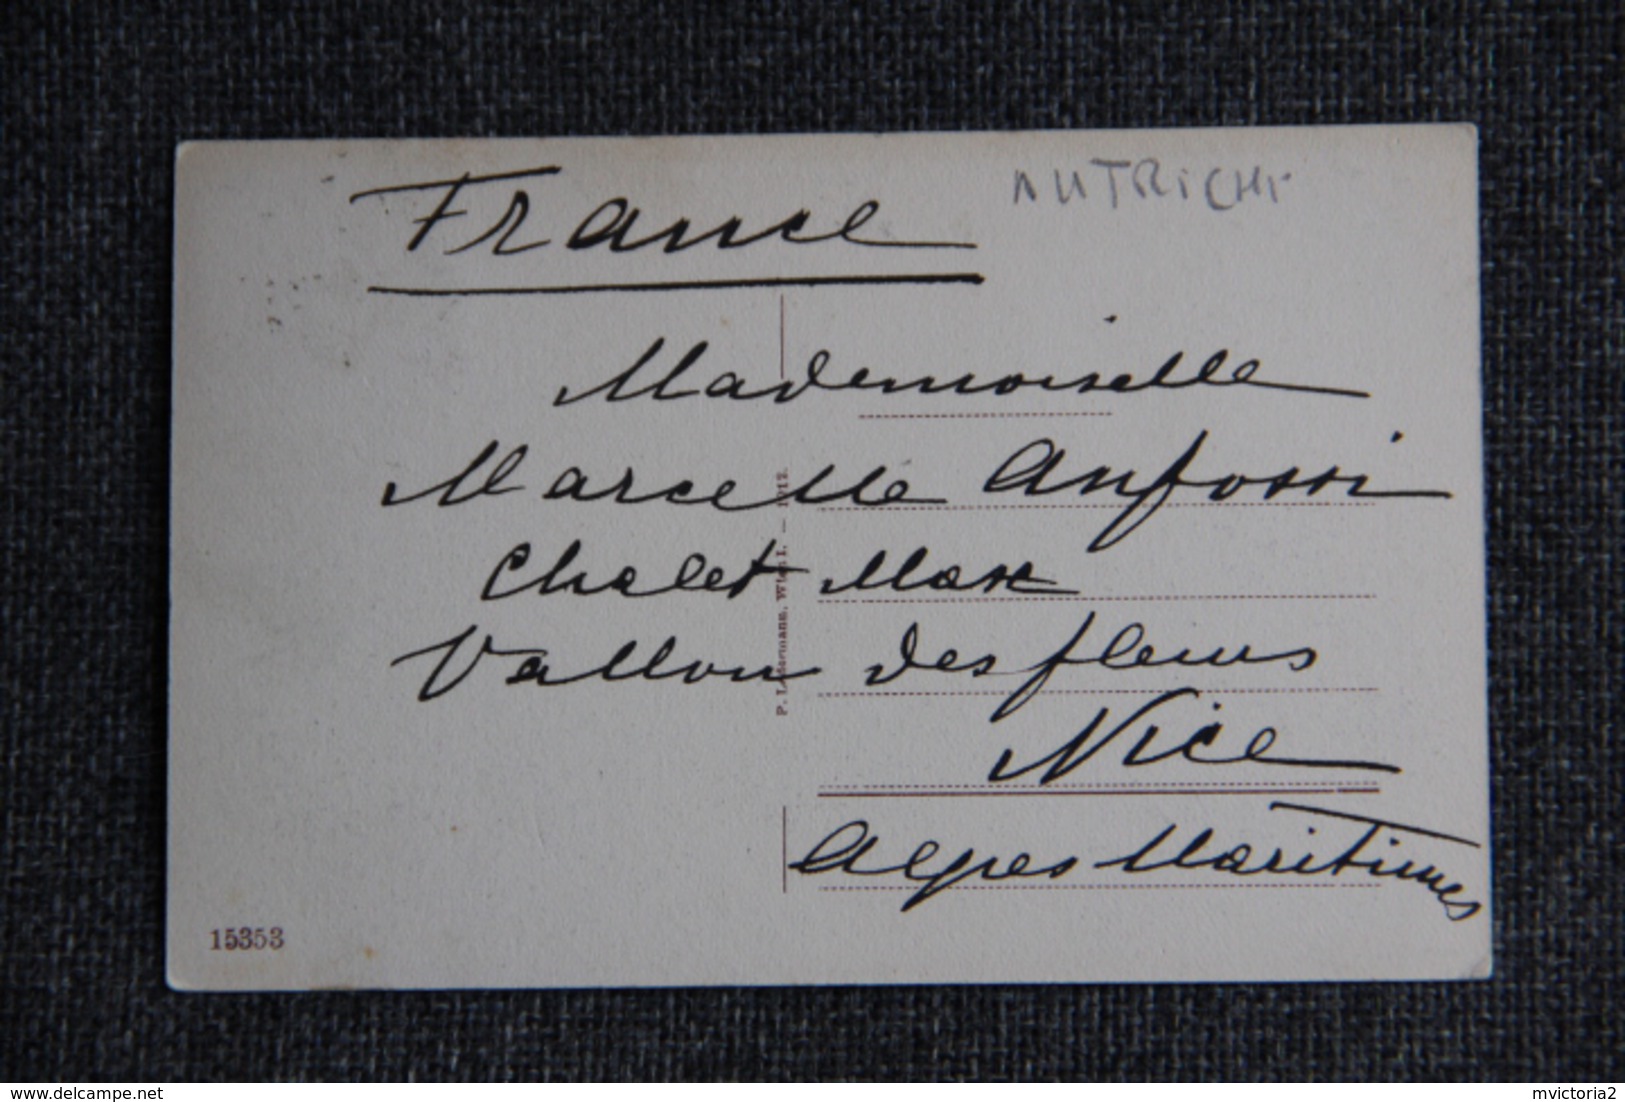 France
AUTRICHE
Mademoiselle
Marcelle Anfossi
Chalet Max
Vallon des fleurs
Nice
Alpes Maritimes
P. Ledermann, Wien I. — 1912.
15353
mvictoria2